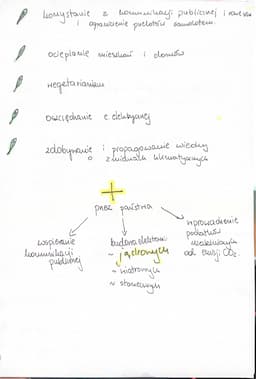 korzystanie z komunikacji publicznej i rowerów
i ograniczenie przelotów samolotem
ocieplanie mieszkań i domów
wegetarianizm
oszczędzanie e. elektrycznej
zdobywanie i propagowanie wiedzy
o zmianach klimatycznych
+
przez państwa
wspieranie
komunikacji
publicznej
budowa elektrowni
~ jądrowych
~ wiatrowych
~ słonecznych
wprowadzenie
podatków
od emisji CO2